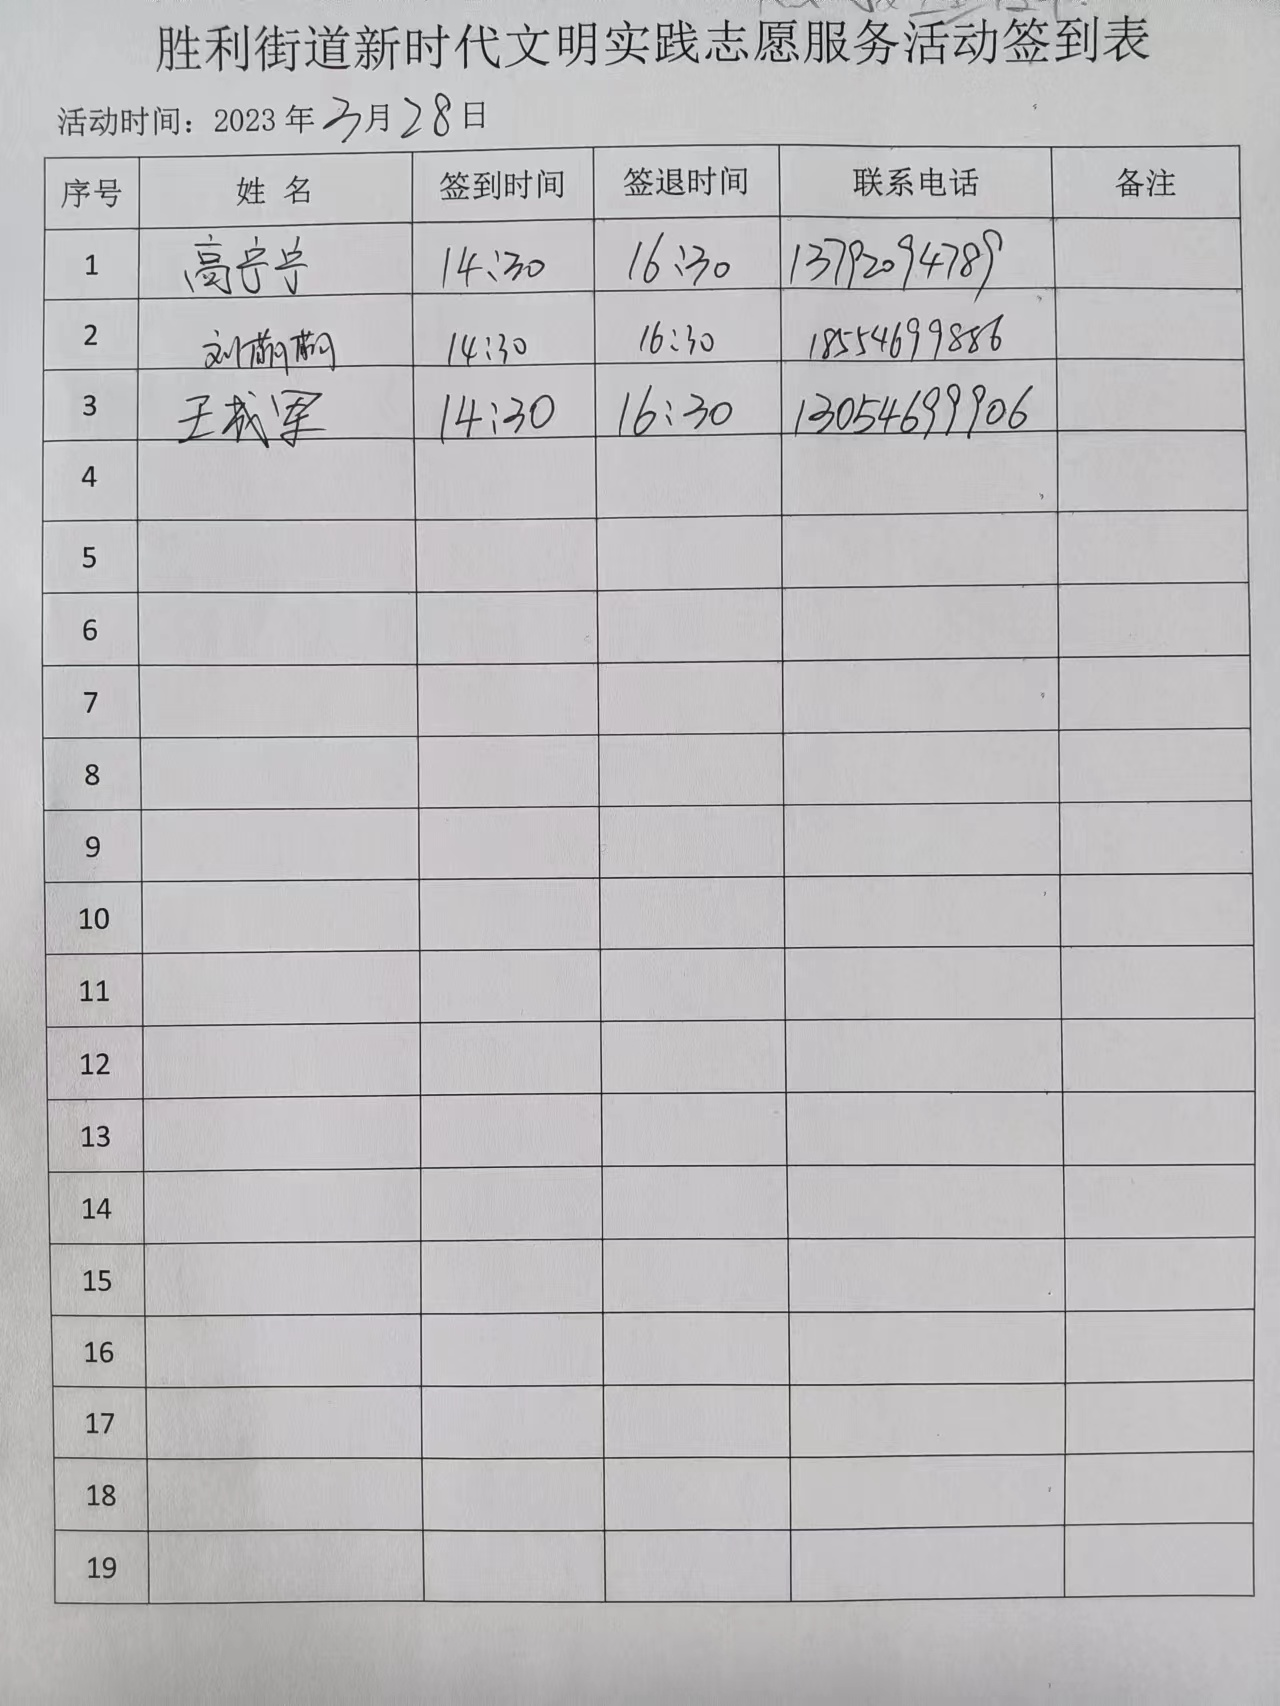 胜利街道新时代文明实践志愿服务活动签到表
活动时间：2023年3月28日
序号 姓 名 签到时间 签退时间 联系电话 备注
1 高宁宁 14:30 16:30 13792094789
2 刘萌萌 14:30 16:30 18554699886
3 王成军 14:30 16:30 13054699906
4
5
6
7
8
9
10
11
12
13
14
15
16
17
18
19